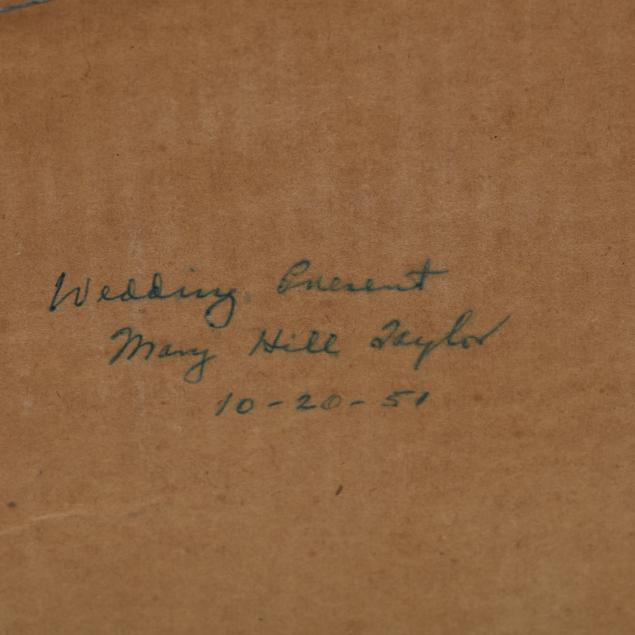 Wedding Present
Mary Hill Taylor
10-20-51